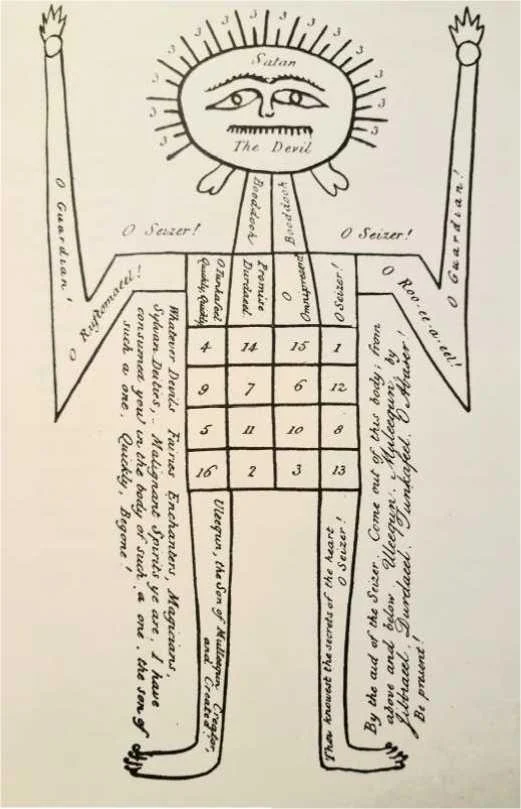 3 3 3 3 3 3 3 3 3 3 3 3 3
Satan
The Devil
Booddooh
Booddooh
O Guardian!
O Guardian!
O Seizer!
O Seizer!
O Ruftomaeel!
O
O Tunkafeel
Quickly, Quickly
Promise
Durdaeel.
O
Omnipresent
O Seizer!
4 14 15 1
9 7 6 12
5 11 10 8
16 2 3 13
Whatever Devils Fairies Enchanters, Magicians,
Sylvan Deities, Malignant Spirits ye are, I have
consumed you in the body of such a one, the son of
such a one. Quickly, Begone!
Uleequn, the Son of Mulleequn Creator,
and Created!
Thou knowest the secrets of the heart
O Seizer!
By the aid of the Seizer. Come out of this body; from
above and below Uleequn. Muleequn, by
Jibbraeel, Durdaeel, Tunkafeel. O Abaser!
Be present!